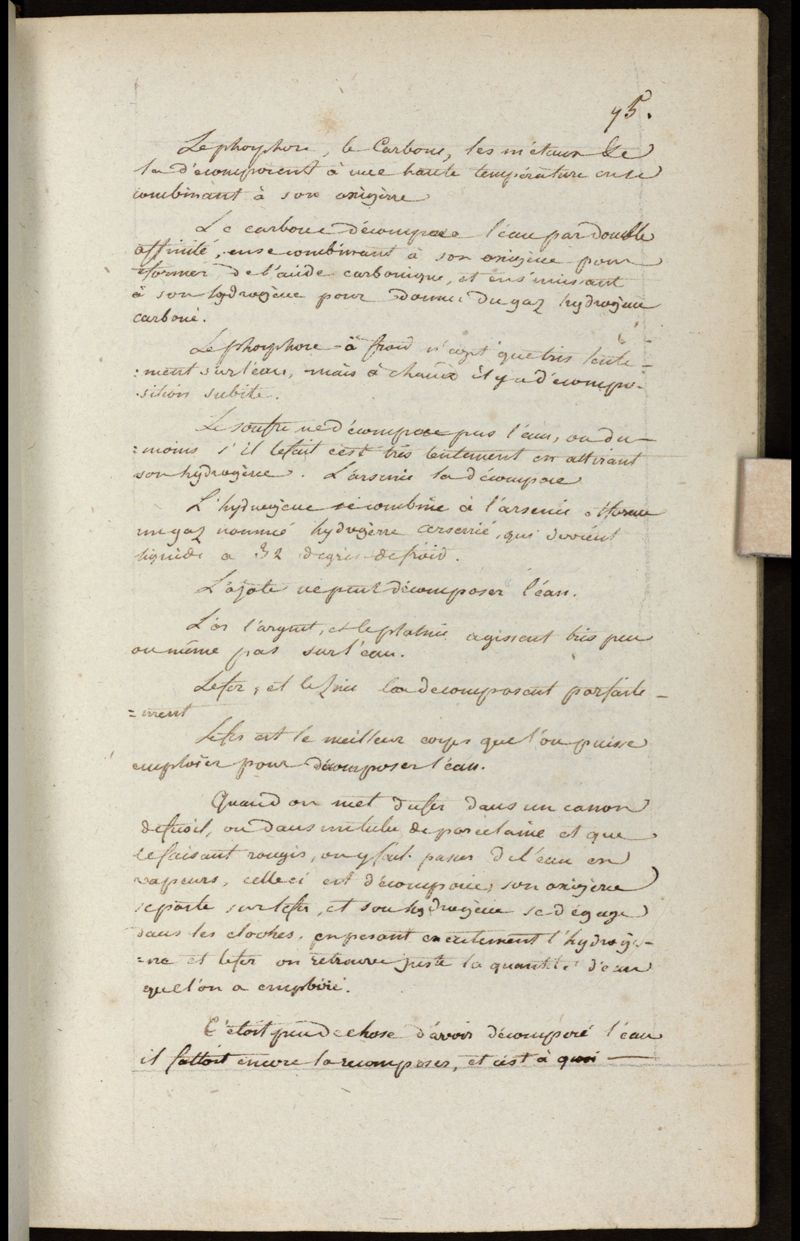 95.
Le phosphore, le Carbone, les métaux &c
la décomposent à une haute température en se
combinant à son oxigène
Le carbone décompose l'eau par double
affinité, en se combinant à son oxigène pour
former de l'acide carbonique, et en s'unissant
à son hydrogène pour donner du gaz hydrogène
carboné.
Le phosphore à froid n'agit que très lente-
=ment sur l'eau, mais à chaud il y a décompo-
-sition subite.
Le soufre ne décompose pas l'eau, ou du-
=moins s'il le fait c'est très lentement en attirant
son hydrogène. L'arsenic la décompose
L'hydrogène se combine à l'arsenic et forme
un gaz nommé hydrogène arsenié, qui devient
liquide a 32 degrés de froid.
L'azote ne peut décomposer l'eau.
L'or l'argent, et le platine agissent très peu
ou même pas sur l'eau.
Le fer, et le Zinc la decomposent parfaite-
=ment
Le fer est le meilleur corps que l'on puisse
emploïer pour décomposer l'eau.
Quand on met du fer dans un canon
de fusil, ou dans un tube de porcelaine et que
le faisant rougir, on y fait passer de l'eau en
vapeurs, celle ci est décomposée, son oxigène
se porte sur le fer, et son hydrogène se dégage
dans les cloches. en pesant exactement l'hydrogè-
=ne et le fer on retrouve juste la quantité d'eau
que l'on a emploïé.
C'étoit peu de chose d'avoir décomposé l'eau
il falloit encore la recomposer, et c'est à quoi